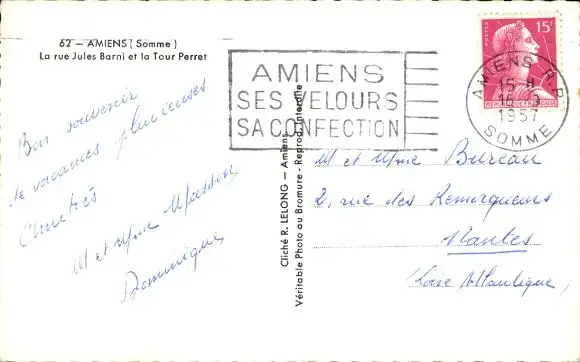 62 - AMIENS (Somme)
La rue Jules Barni et la Tour Perret
Bon souvenir
de vacances pluvieuses
Amitiés
M et Mme Masson
Dominique
Cliché R. LELONG - Amiens
Véritable Photo au Bromure - Reprod. Interdite
AMIENS
SES VELOURS
SA CONFECTION
POSTES
15F
REPUBLIQUE FRANÇAISE
AMIENS R.P.
15 H
1957
SOMME
M et Mme Bureau
2, rue des Remorqueurs
Nantes
Loire Atlantique